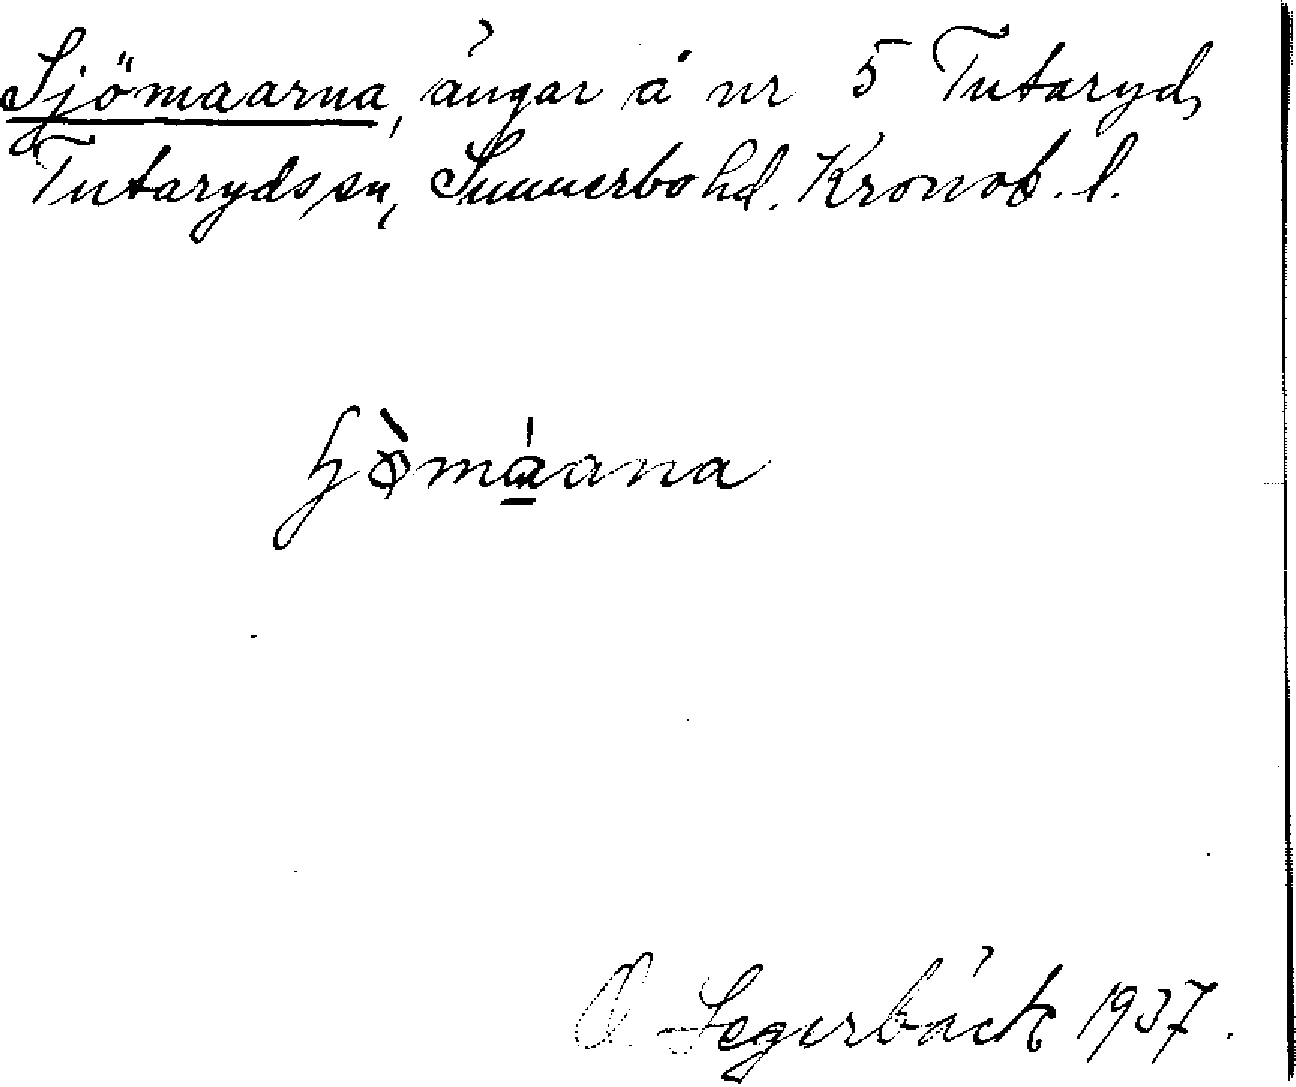 Sjömaarna, ängar å nr 5 Tutaryd,
Tutaryds sn, Sunnerbo hd. Kronob. l.
Segerbäck 1937.